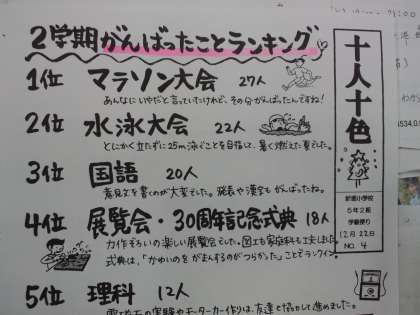 2学期がんばったことランキング
1位 マラソン大会 27人
あんなにいやだと言っていたけれど、その分がんばったんですね!
2位 水泳大会 22人
とにかく立たずに25m泳ぐことを目指して、暑く燃えた夏でした。
3位 国語 20人
意見文を書くのが大変でした。発表や漢字もがんばったね。
4位 展覧会・30周年記念式典 18人
力作ぞろいの楽しい展覧会でした。図工も家庭科も工夫しました。
式典は、「かゆいのをがまんするのがつらかった」ことでランクイン。
5位 理科 12人
電磁石の実験やモーターカー作りは、友達と協力して進めました。
十人十色
小学校
5年2組
学級便り
12月22日
NO. 4